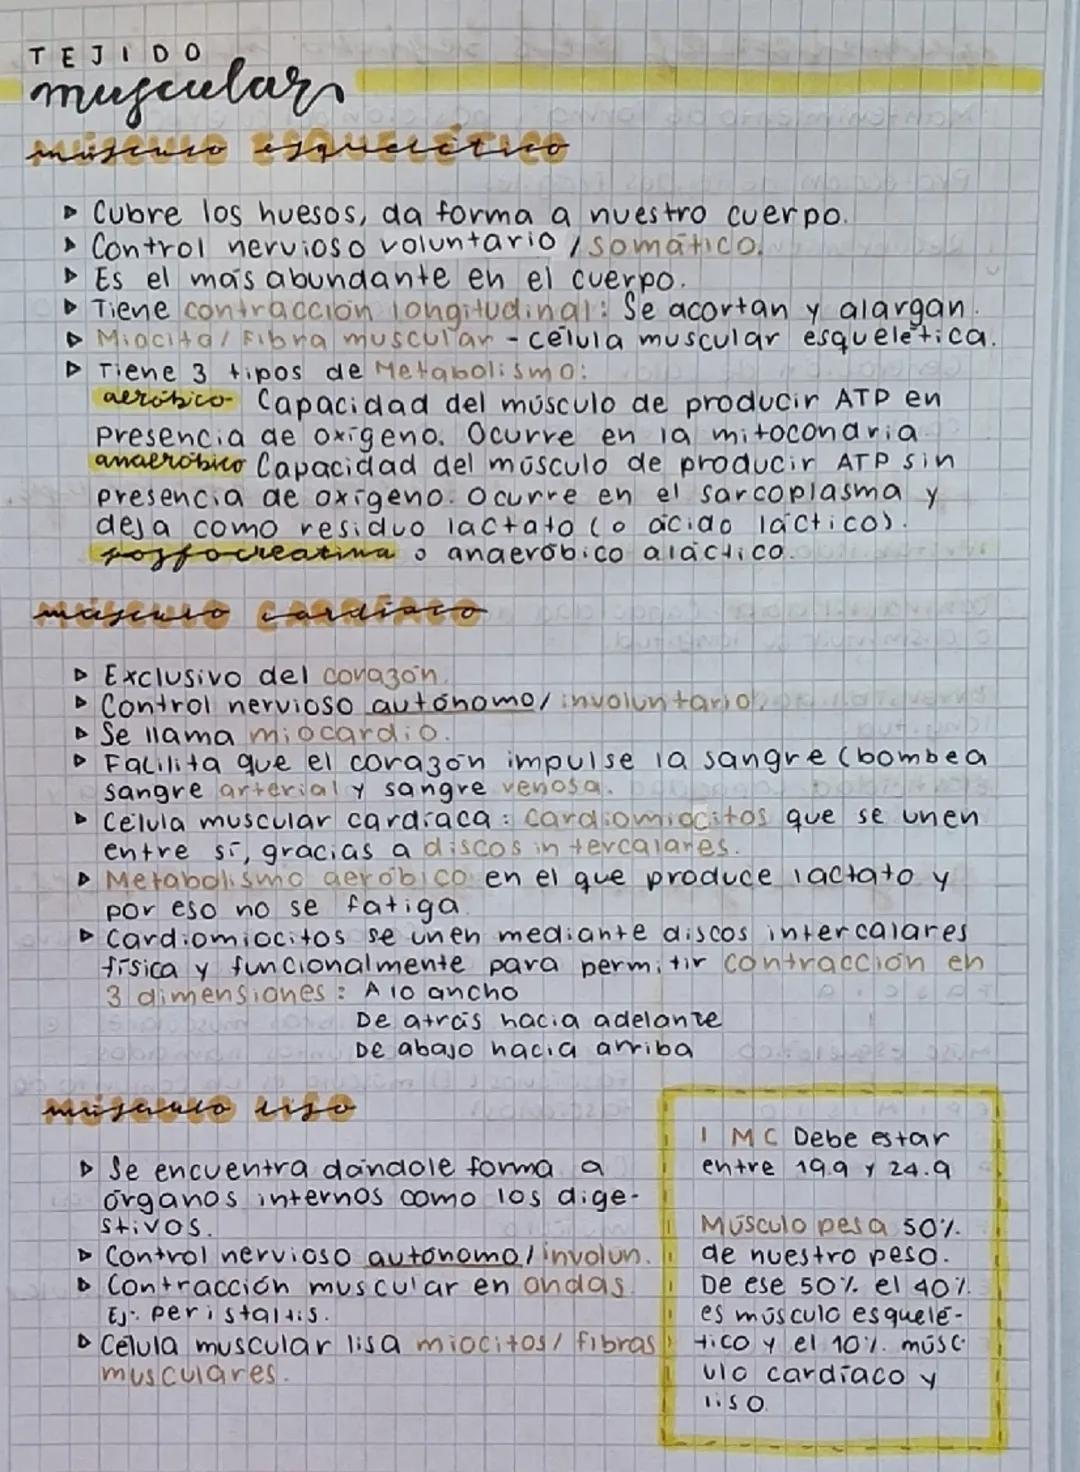 TEJIDO
muscular
músculo esquelético
▷ Cubre los huesos, da forma a nuestro cuerpo.
▷ Control nervioso voluntario / somático.
▷ Es el más abundante en el cuerpo.
▷ Tiene contracción longitudinal: Se acortan y alargan.
▷ Miocito/ Fibra muscular - célula muscular esquelética.
▷ Tiene 3 tipos de Metabolismo:
aeróbico Capacidad del músculo de producir ATP en
presencia de oxígeno. Ocurre en la mitocondria
anaeróbico Capacidad del músculo de producir ATP sin
presencia de oxígeno. Ocurre en el sarcoplasma y
deja como residuo lactato (o ácido láctico).
fosfocreatina o anaeróbico aláctico.
músculo cardíaco
▷ Exclusivo del corazón.
▷ Control nervioso autónomo/ involuntario.
▷ Se llama miocardio.
▷ Facilita que el corazón impulse la sangre (bombea
sangre arterial y sangre venosa.
▷ Célula muscular cardíaca: cardiomiocitos que se unen
entre sí, gracias a discos intercalares.
▷ Metabolismo aeróbico en el que produce lactato y
por eso no se fatiga
▷ Cardiomiocitos se unen mediante discos intercalares
física y funcionalmente para permitir contracción en
3 dimensiones: A lo ancho
De atrás hacia adelante
De abajo hacia arriba
músculo liso
▷ Se encuentra dándole forma a
órganos internos como los dige-
stivos.
▷ Control nervioso autónomo/ involun.
▷ Contracción muscular en ondas
Ej: peristaltis.
▷ Célula muscular lisa miocitos/ fibras
musculares.
IMC Debe estar
entre 19.9 y 24.9
Músculo pesa 50%
de nuestro peso.
De ese 50% el 40%
es músculo esquelé-
tico y el 10% músc
ulo cardíaco y
liso.